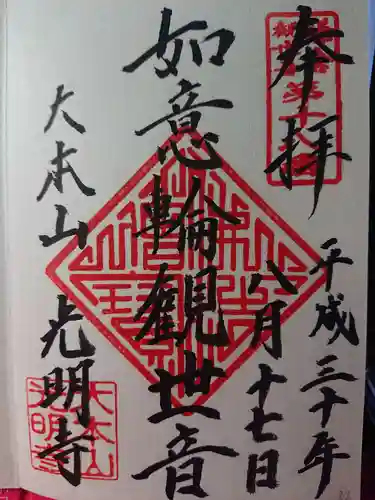 奉拝
平成三十年
八月十七日
如意輪觀世音
大本山 光明寺
大本山
光明寺